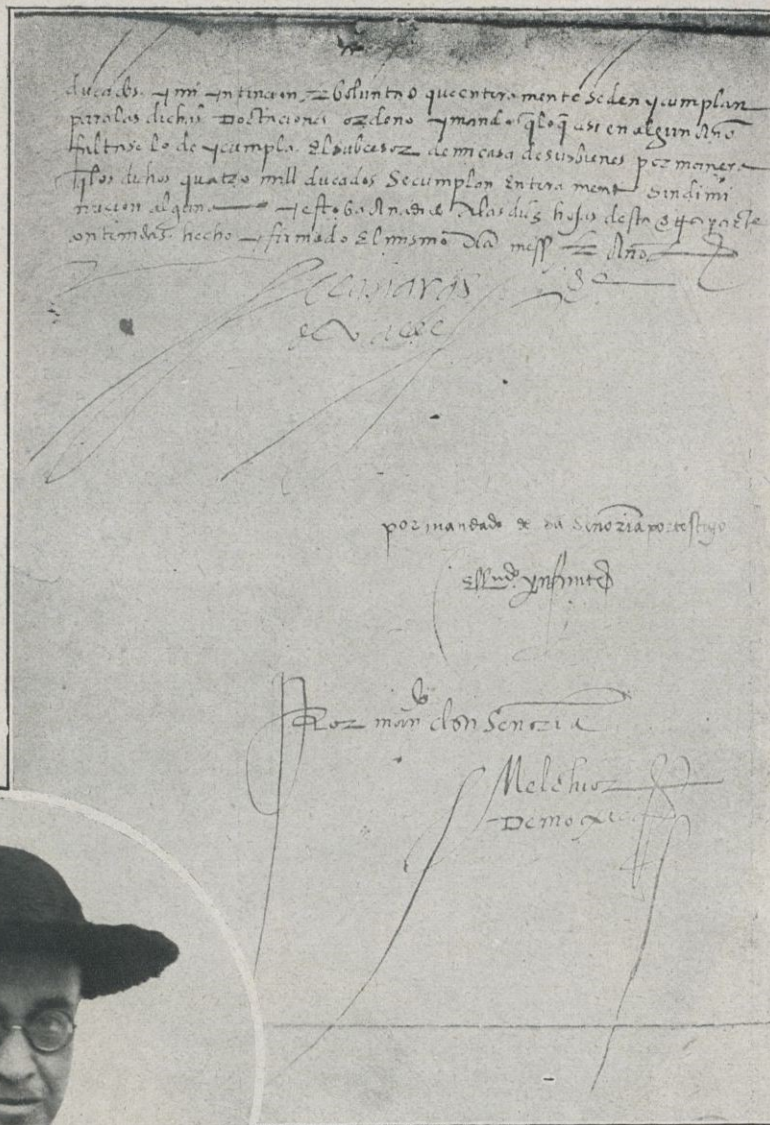 ducados y mi yntincion z Boluntad que entera mente se den y cumplan
para las dichas Dottaciones ordeno y mando q lo q asi en algun Año
faltase lo de y cumpla El subcesor de mi casa de sus bienes por manera
q los dichos quatro mill ducados Se cumplan Entera mente Sin dimi
nucion alguna y esto ba Anadido A las dos hojas desta escriptura
contenidas hecho y firmado El mismo Dia mes z Año
por mandado de su Señoria por testigo
ynfante
Por man^do de su Senoria
Melchior
De